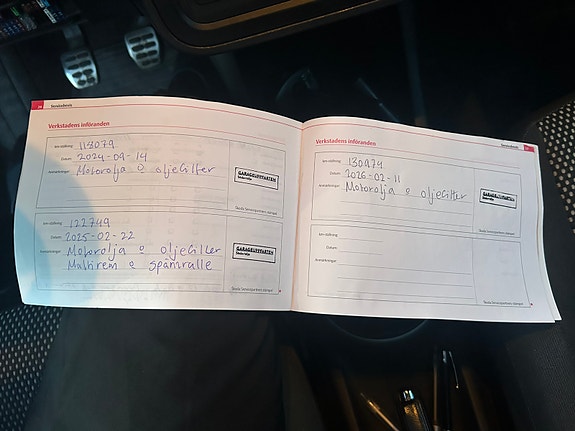 Servicebevis
Verkstadens införanden
km-ställning: 118079
Datum: 2024-09-14
Anmärkningar: Motorolja o oljefilter
GARAGEUPPFARTEN
Södertälje
Škoda Servicepartners stämpel
km-ställning: 122749
Datum: 2025-02-22
Anmärkningar: Motorolja o oljefilter
Multirem o spännrulle
GARAGEUPPFARTEN
Södertälje
Škoda Servicepartners stämpel
Servicebevis
Verkstadens införanden
km-ställning: 130979
Datum: 2026-02-11
Anmärkningar: Motorolja o oljefilter
Škoda Servicepartners stämpel
km-ställning:
Datum:
Anmärkningar:
Škoda Servicepartners stämpel